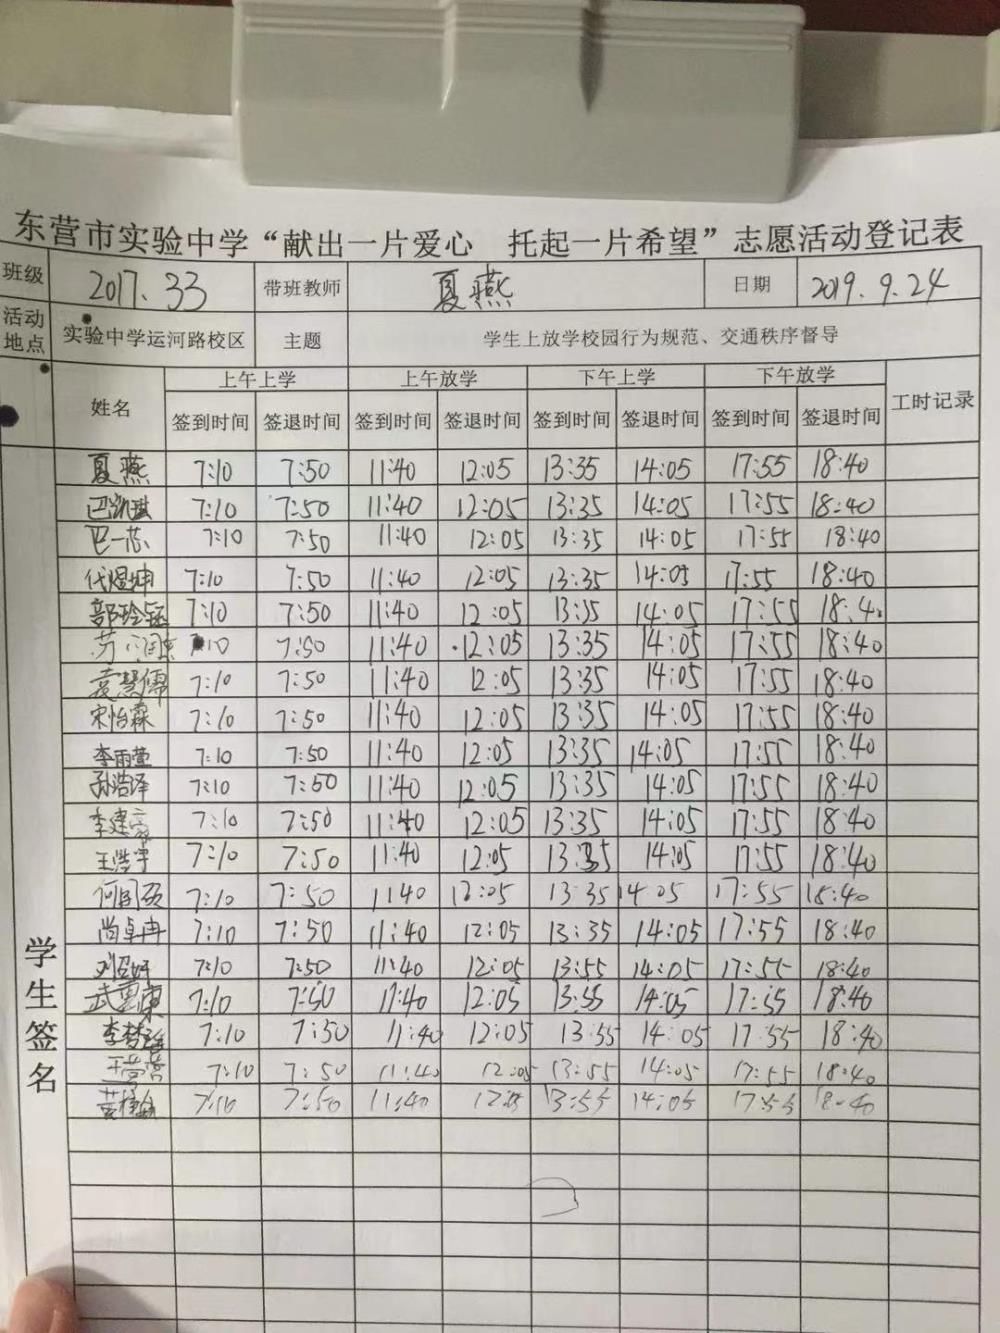 东营市实验中学“献出一片爱心 托起一片希望”志愿活动登记表
班级 2017.33 带班教师 夏燕 日期 2019.9.24
活动地点 实验中学运河路校区 主题 学生上放学校园行为规范、交通秩序督导
姓名 上午上学 上午放学 下午上学 下午放学 工时记录
签到时间 签退时间 签到时间 签退时间 签到时间 签退时间 签到时间 签退时间
学生签名
夏燕 7:10 7:50 11:40 12:05 13:35 14:05 17:55 18:40
巴凯琪 7:10 7:50 11:40 12:05 13:35 14:05 17:55 18:40
巴一芯 7:10 7:50 11:40 12:05 13:35 14:05 17:55 18:40
代煜坤 7:10 7:50 11:40 12:05 13:35 14:05 17:55 18:40
7:10 7:50 11:40 12:05 13:35 14:05 17:55 18:40
:10 7:50 11:40 12:05 13:35 14:05 17:55 18:40
袁慧儒 7:10 7:50 11:40 12:05 13:35 14:05 17:55 18:40
宋怡霖 7:10 7:50 11:40 12:05 13:35 14:05 17:55 18:40
李雨萱 7:10 7:50 11:40 12:05 13:35 14:05 17:55 18:40
孙浩泽 7:10 7:50 11:40 12:05 13:35 14:05 17:55 18:40
李建豪 7:10 7:50 11:40 12:05 13:35 14:05 17:55 18:40
王浩宇 7:10 7:50 11:40 12:05 13:35 14:05 17:55 18:40
7:10 7:50 11:40 12:05 13:35 14:05 17:55 18:40
尚卓冉 7:10 7:50 11:40 12:05 13:35 14:05 17:55 18:40
7:10 7:50 11:40 12:05 13:55 14:05 17:55 18:40
7:10 7:50 11:40 12:05 13:55 14:05 17:55 18:40
李梦瑶 7:10 7:50 11:40 12:05 13:55 14:05 17:55 18:40
7:10 7:50 11:40 12:05 13:55 14:05 17:55 18:40
7:10 7:50 11:40 13:55 14:05 17:55 18:40